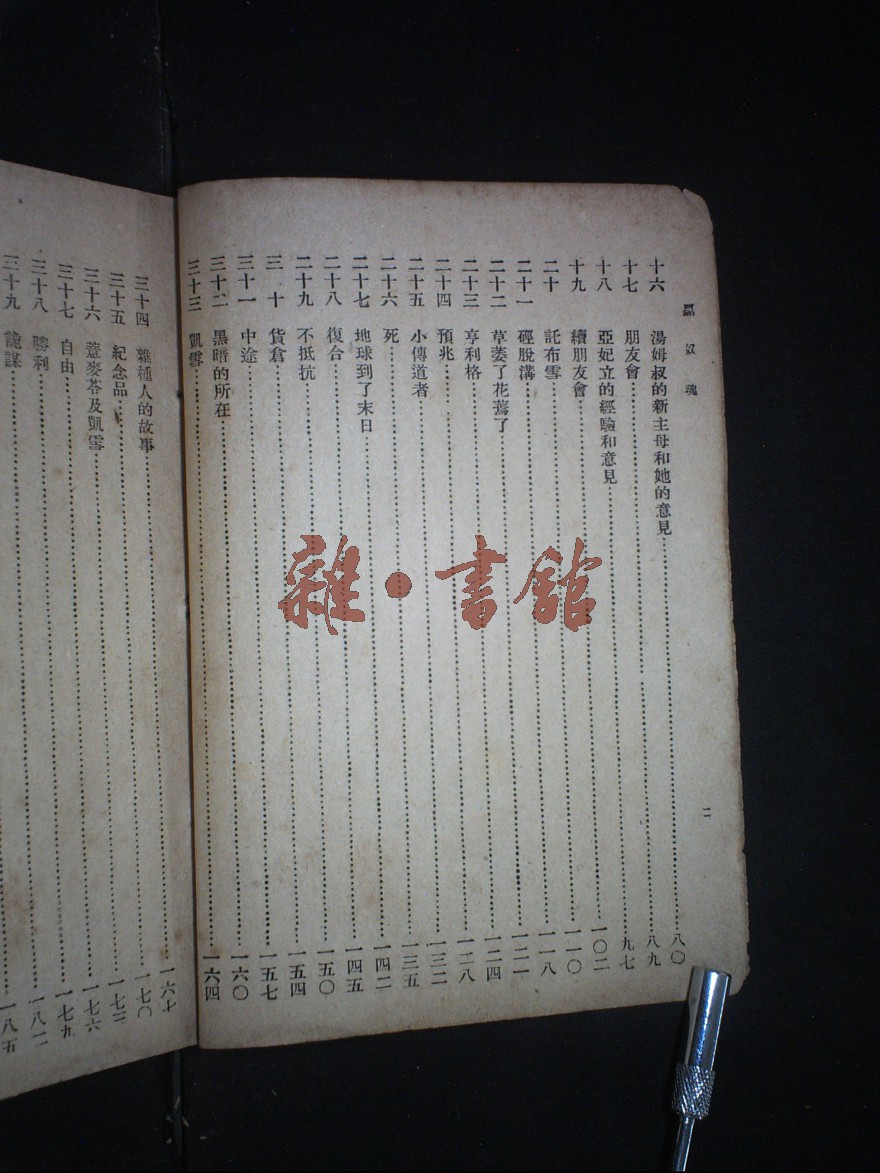 黑奴魂
十六 湯姆叔的新主母和她的意見 八〇
十七 朋友會 八九
十八 亞妃立的經驗和意見 九七
十九 續朋友會 一〇二
二十 託布雪 一一〇
二十一 硜脫溝 一一八
二十二 草萎了花蔫了 一二一
二十三 亨利格 一二四
二十四 預兆 一二八
二十五 小傳道者 一三二
二十六 死 一三五
二十七 地球到了末日 一四二
二十八 復合 一四五
二十九 不抵抗 一五〇
三十 貨倉 一五四
三十一 中途 一五七
三十二 黑暗的所在 一六〇
三十三 凱雪 一六四
二
三十四 雜種人的故事 一六七
三十五 紀念品 一七〇
三十六 薏麥苓及凱雪 一七三
三十七 自由 一七六
三十八 勝利 一七九
三十九 詭謀 一八二
一八五
雜·書館